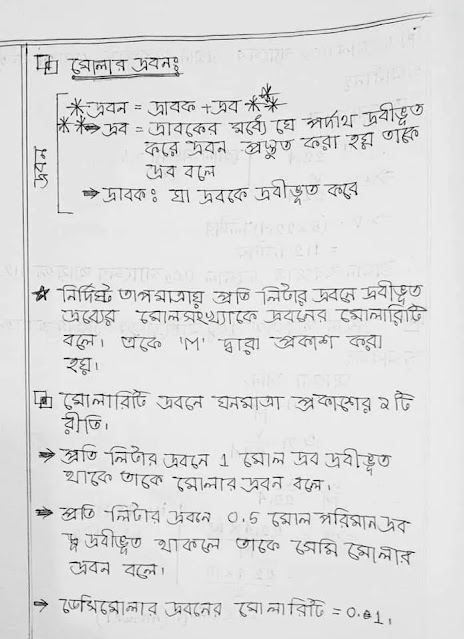 মোলার দ্রবন:
* দ্রবন = দ্রাবক + দ্রব **
** ⇒ দ্রব = দ্রাবকের মধ্যে যে পর্দাথ দ্রবীভূত
করে দ্রবন প্রস্তুত করা হয় তাকে
দ্রব বলে
দ্রবন
⇒ দ্রাবক: যা দ্রবকে দ্রবীভূত করে
* নির্দিষ্ট তাপমাত্রায় প্রতি লিটার দ্রবনে দ্রবীভূত
দ্রব্যের মোলসংখ্যাকে দ্রবনের মোলারিটি
বলে। একে 'M' দ্বারা প্রকাশ করা
হয়।
মোলারিটি দ্রবনে ঘনমাত্রা প্রকাশের ২টি
রীতি।
⇒ প্রতি লিটার দ্রবনে 1 মোল দ্রব দ্রবীভূত
থাকে তাকে মোলার দ্রবন বলে।
⇒ প্রতি লিটার দ্রবনে 0.5 মোল পরিমান দ্রব
দ্রবীভূত থাকলে তাকে সেমি মোলার
দ্রবন বলে।
⇒ ডেসিমোলার দ্রবনের মোলারিটি = 0.1।